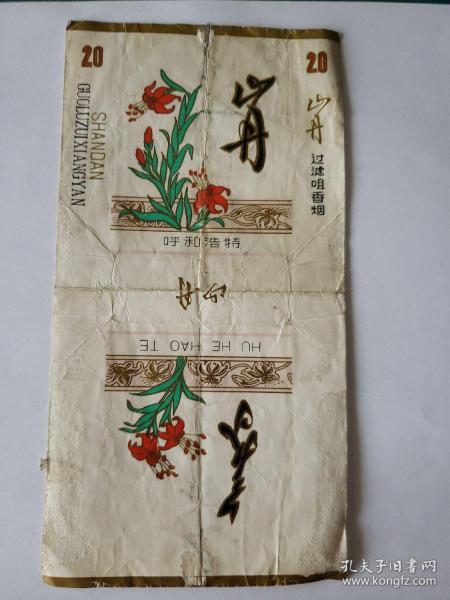 20
SHANDAN
GUOLUZUIXIANGYAN
山丹
呼和浩特
20
山丹
过滤咀香烟
山丹
HU HE HAO TE
山丹
孔夫子旧书网
www.kongfz.com